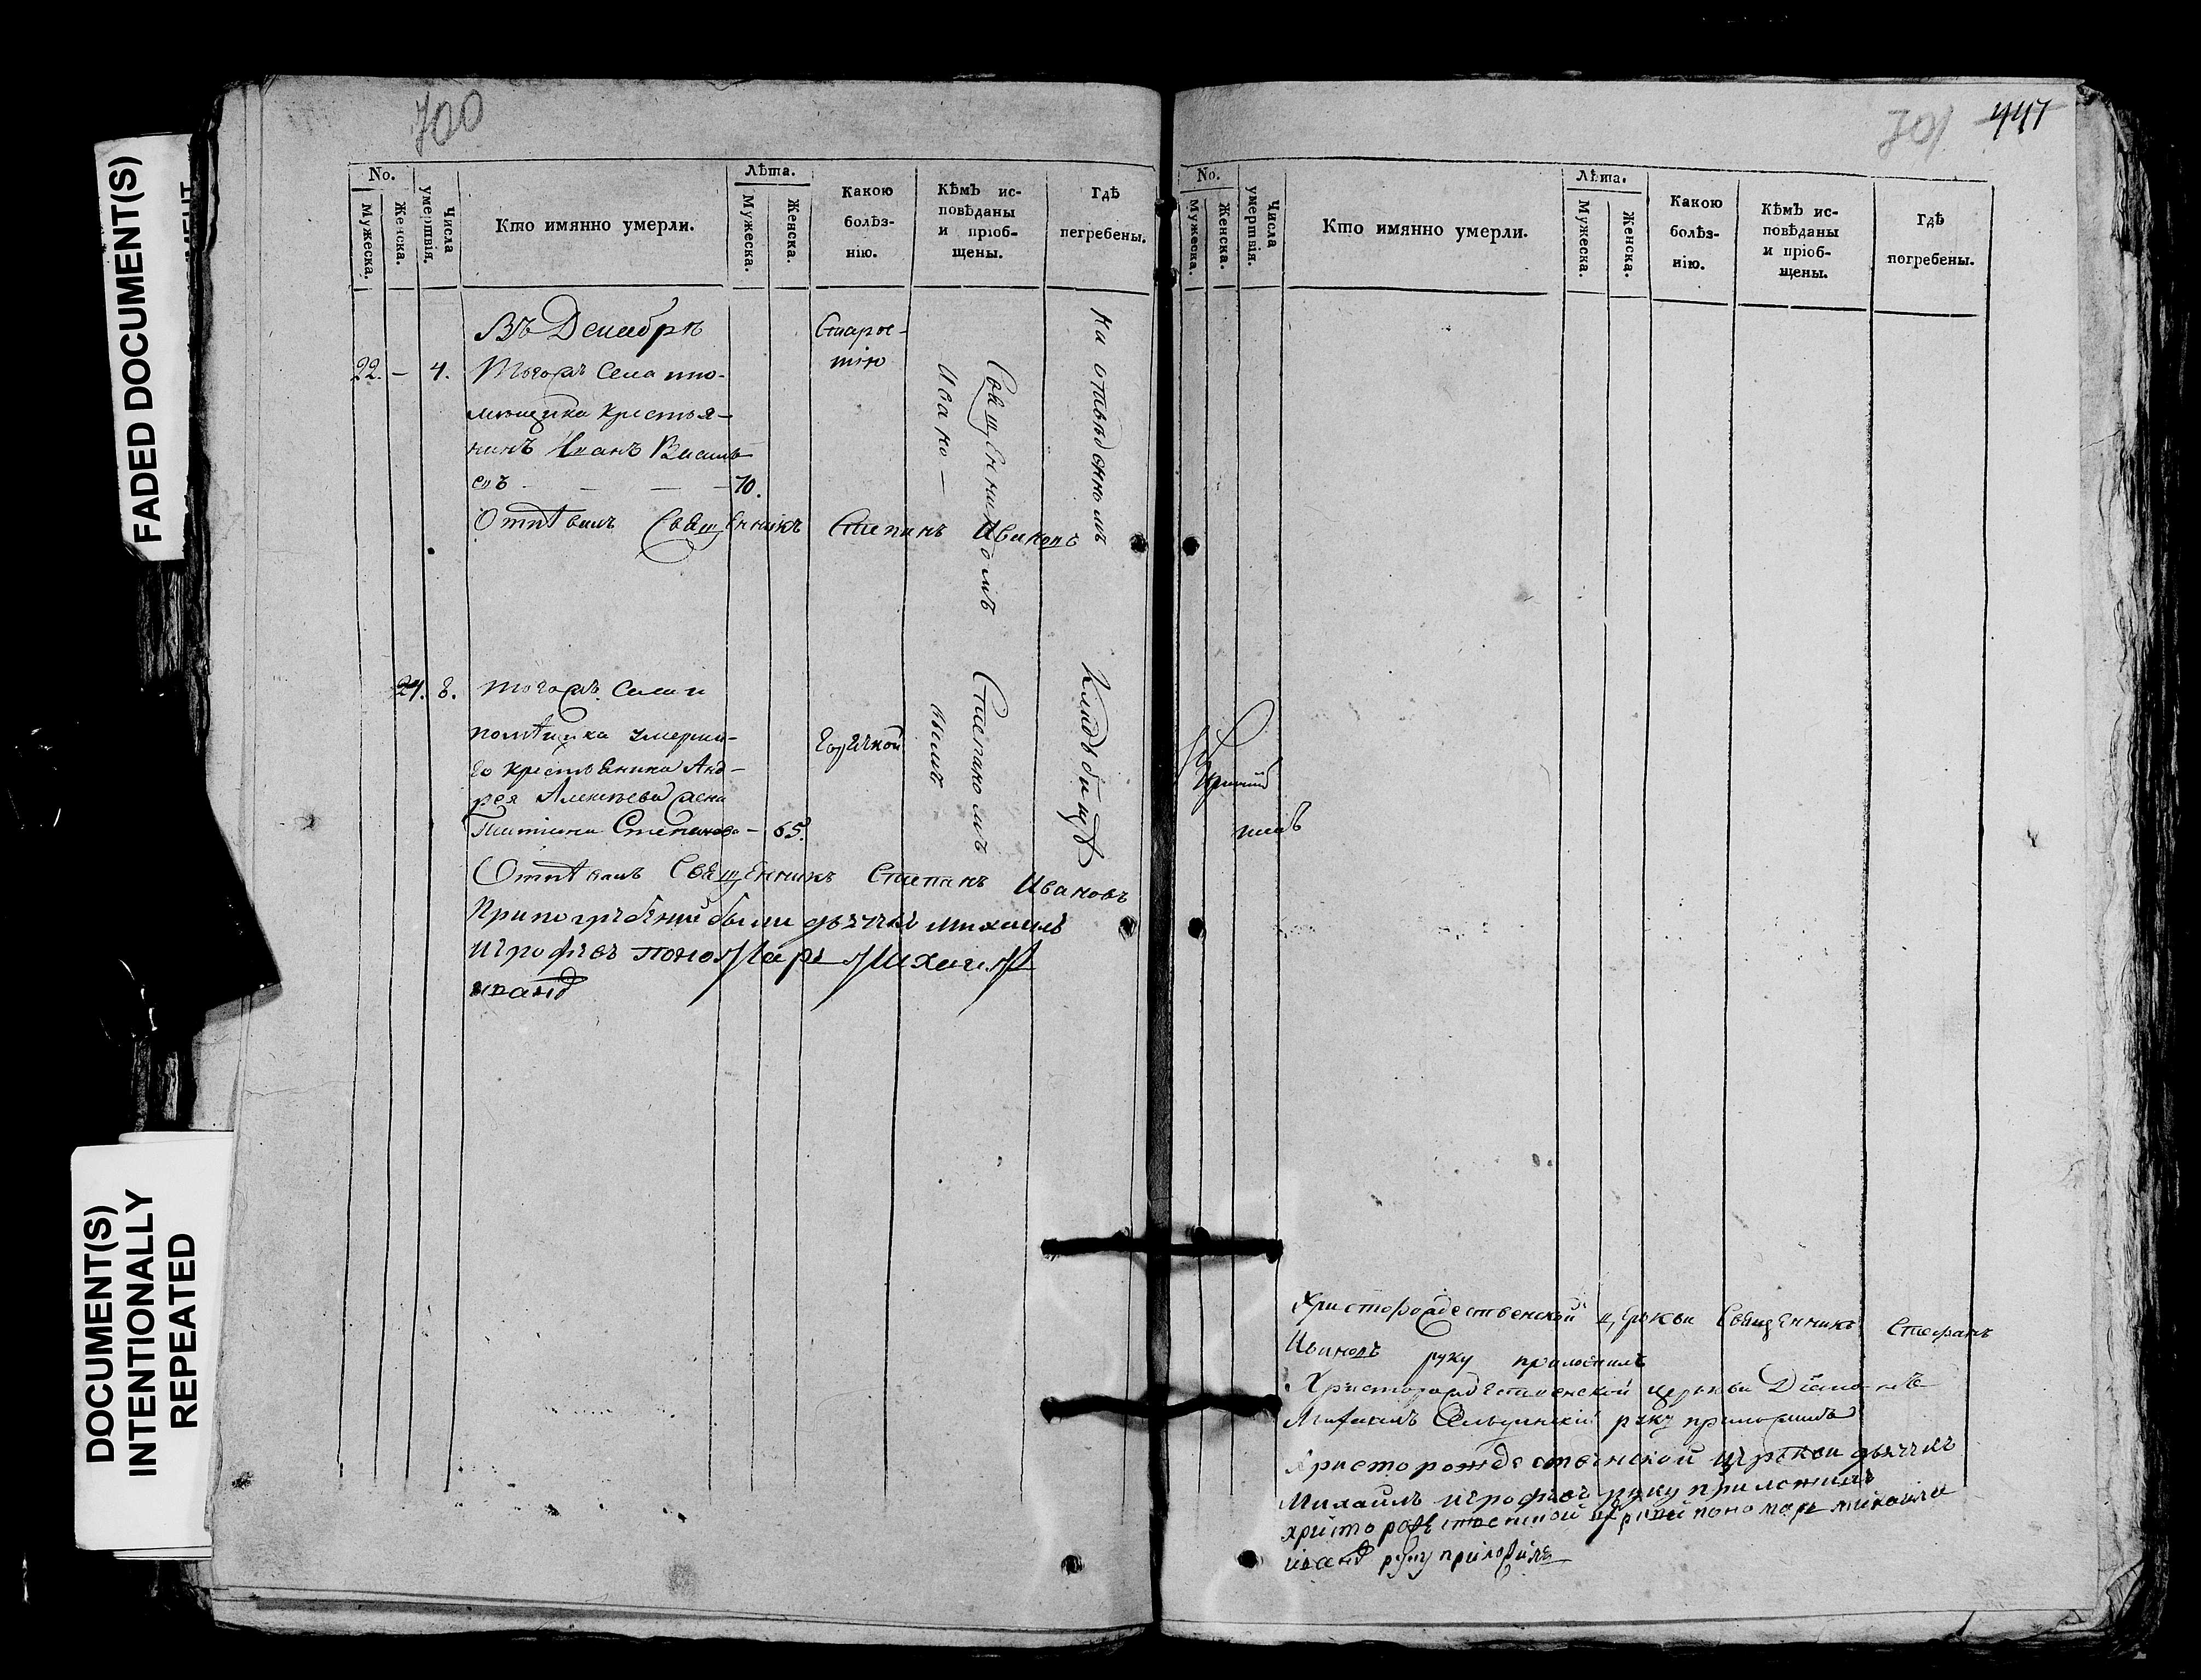 FADED DOCUMENT(S)
DOCUMENT(S)
INTENTIONALLY
REPEATED
700
No.
Мужеска.
Женска.
Числа
умертвія.
Кто имянно умерли.
Лѣта.
Мужеска.
Женска.
Какою
болѣз-
нію.
Кѣмъ ис-
повѣданы
и пріоб-
щены.
Гдѣ
пегребены.
Въ Декабрѣ
22. – 4. Тогожъ Села по-
мѣщика крестья-
нинъ Иванъ Василь
евъ – – – 70.
Старос-
тію
Священникомъ
Ивано –
на отведенномъ
Отпѣвалъ Священникъ Степанъ Ивановъ
24. 8. тогожъ Села и
помѣщика умерша-
го крестьянина Анд-
рея Алексѣева жена
Степанова – 65.
Горячкой
Степаномъ
вымъ
Кладбищѣ
Отпѣвалъ Священникъ Степанъ Ивановъ
При погребеніи были дьячекъ Михаилъ
Игрофѣевъ пономарь Михаил
иванов
701 447
No.
Мужеска.
Женска.
Числа
умертвія.
Кто имянно умерли.
Лѣта.
Мужеска.
Женска.
Какою
болѣз-
нію.
Кѣмъ ис-
повѣданы
и пріоб-
щены.
Гдѣ
погребены.
Христорождественской церькви Священникъ Стефанъ
Ивановъ руку приложилъ
Христорождественской церькви Діаконъ
Михаилъ руку приложилъ
Христорождественской церькви дьячекъ
Михаилъ игрофѣевъ руку приложилъ
христорождественской церкви пономарь михаила
иванов руку приложилъ